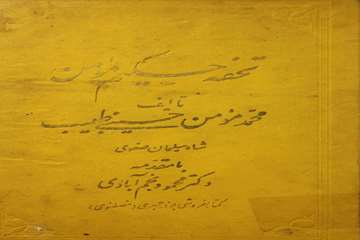 تحفه حکیم مؤمن
تألیف
محمد مؤمن حسینی طبیب
شاه سلیمان صفوی
با مقدمه
دکتر محمود نجم آبادی
کتابفروشی بوذرجمهری (مصطفوی)